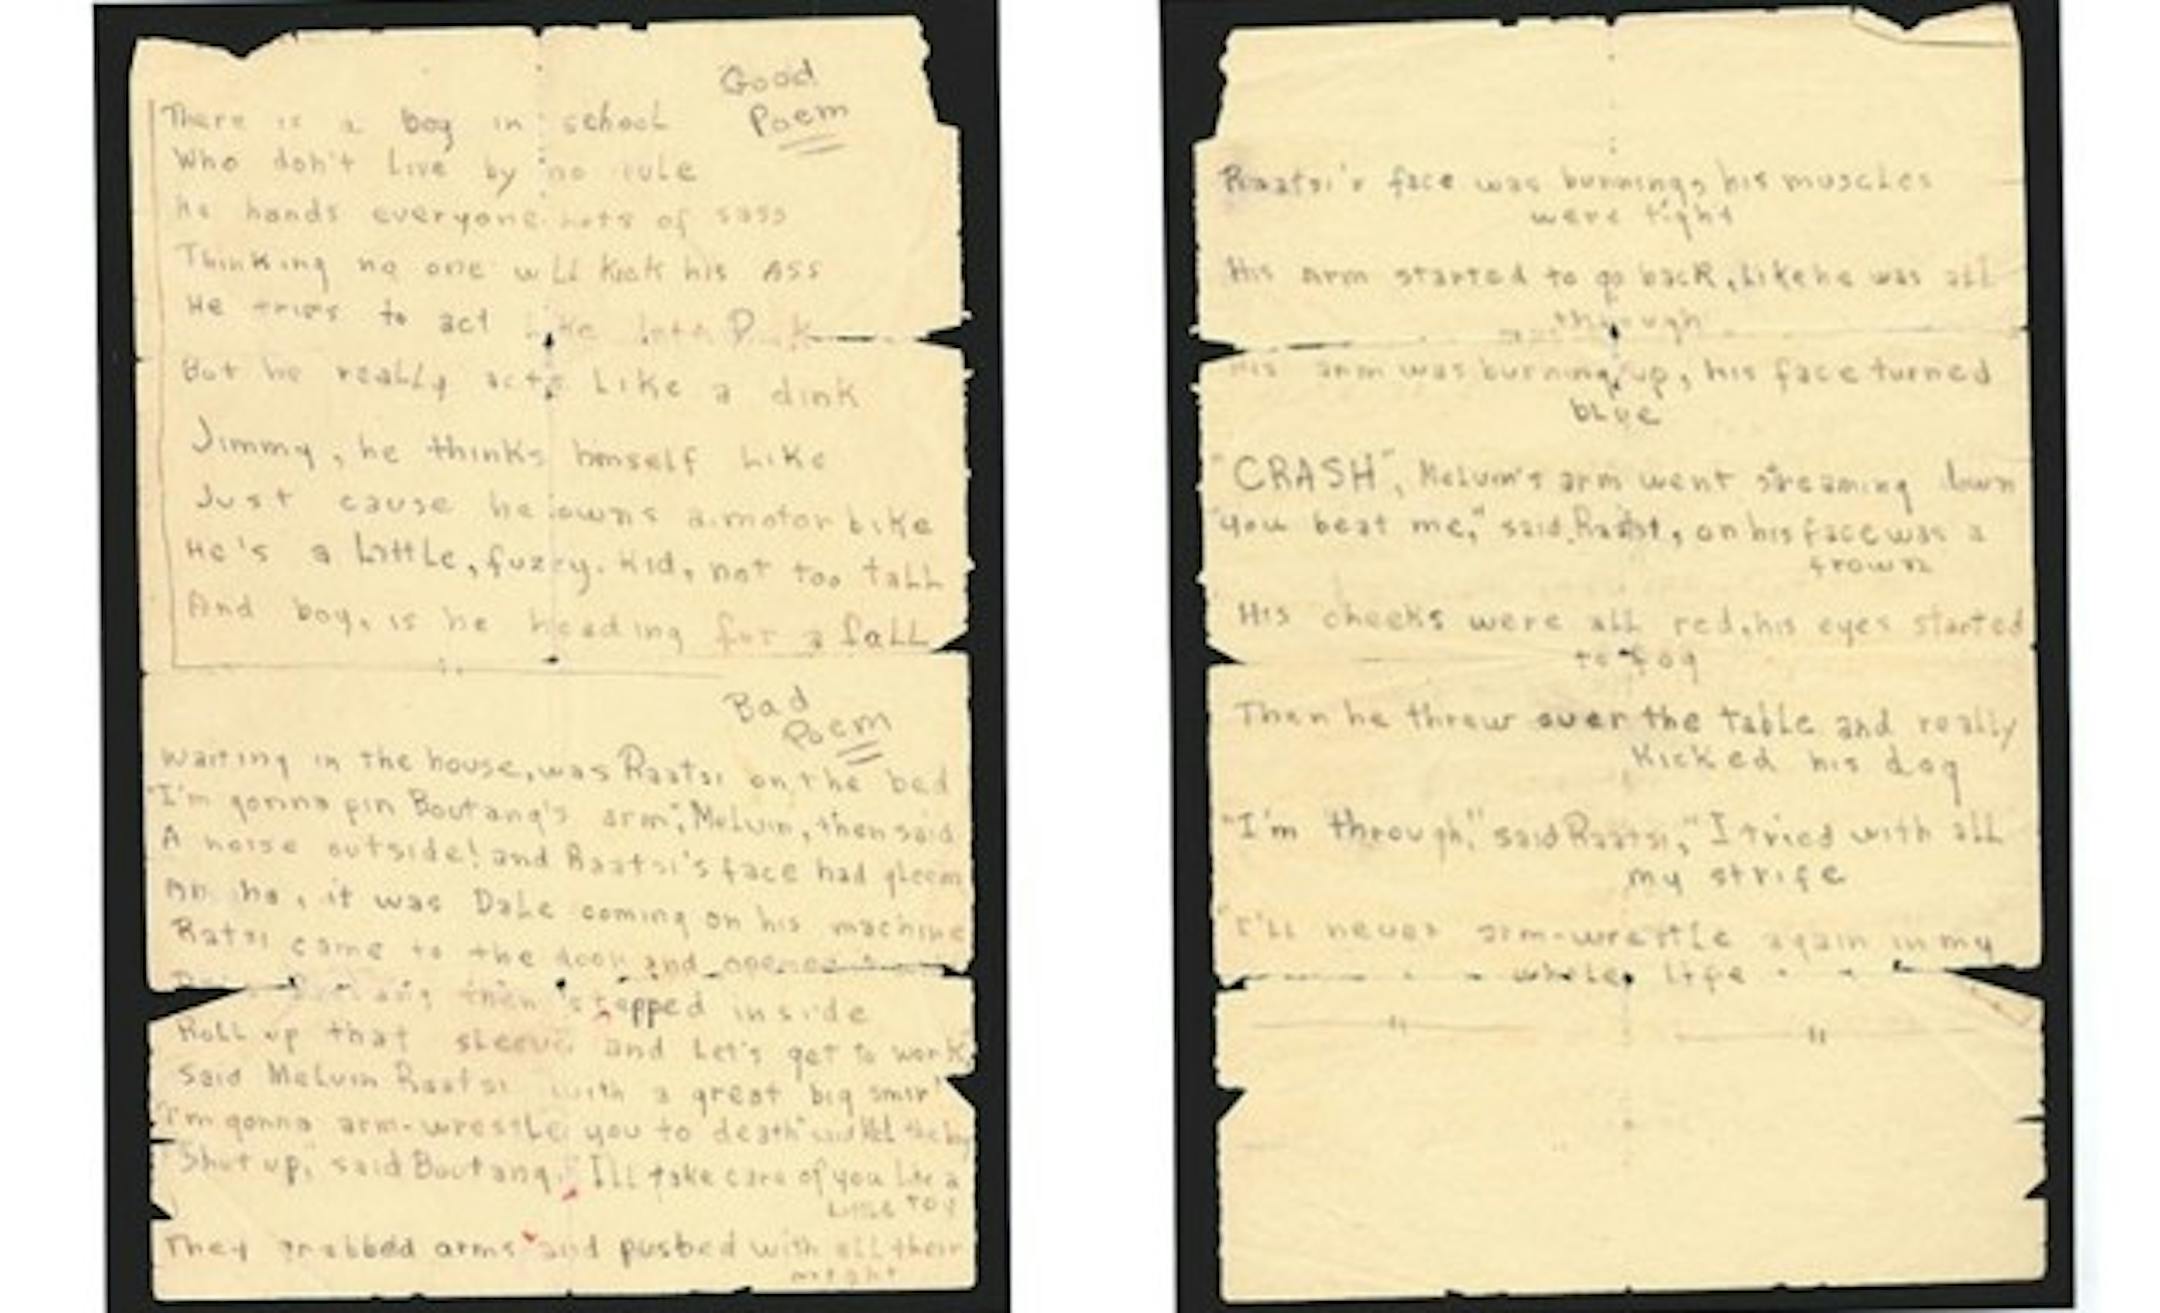 Good
Poem
There is a boy in school
Who don't Live by no rule
he hands everyone Lots of sass
Thinking no one will kick his ASS
He tries to act Like
But he really acts Like a dink
Jimmy, he thinks himself Like
Just cause he owns a motor bike
He's a Little, fuzzy. Kid, not too tall
And boy, is he heading for a fall
Bad
Poem
Waiting in the house, was Raatsi on the bed
"I'm gonna pin Boutang's arm", Melvin, then said
A noise outside! and Raatsi's face had gleem
Ah ha, it was Dale coming on his machine
Ratsi came to the door and opened
then stepped inside
Roll up that sleeve and Let's get to work
Said Melvin Raatsi with a great big smir
I'm gonna arm-wrestle you to death" said
"Shut up," said Boutang. "I'll take care of you Like a
Little Toy
They grabbed arms and pushed with all their
might
Raatsi's face was burning, his muscles
were tight
His Arm started to go back, Like he was all
through
His arm was burning up, his face turned
blue
"CRASH", Melvin's arm went streaming down
"you beat me," said Raatsi, on his face was a
frown
His cheeks were all red, his eyes started
to fog
Then he threw over the table and really
kicked his dog
"I'm through," said Raatsi, "I tried with all
my strife
"I'LL never arm-wrestle again in my
whole Life